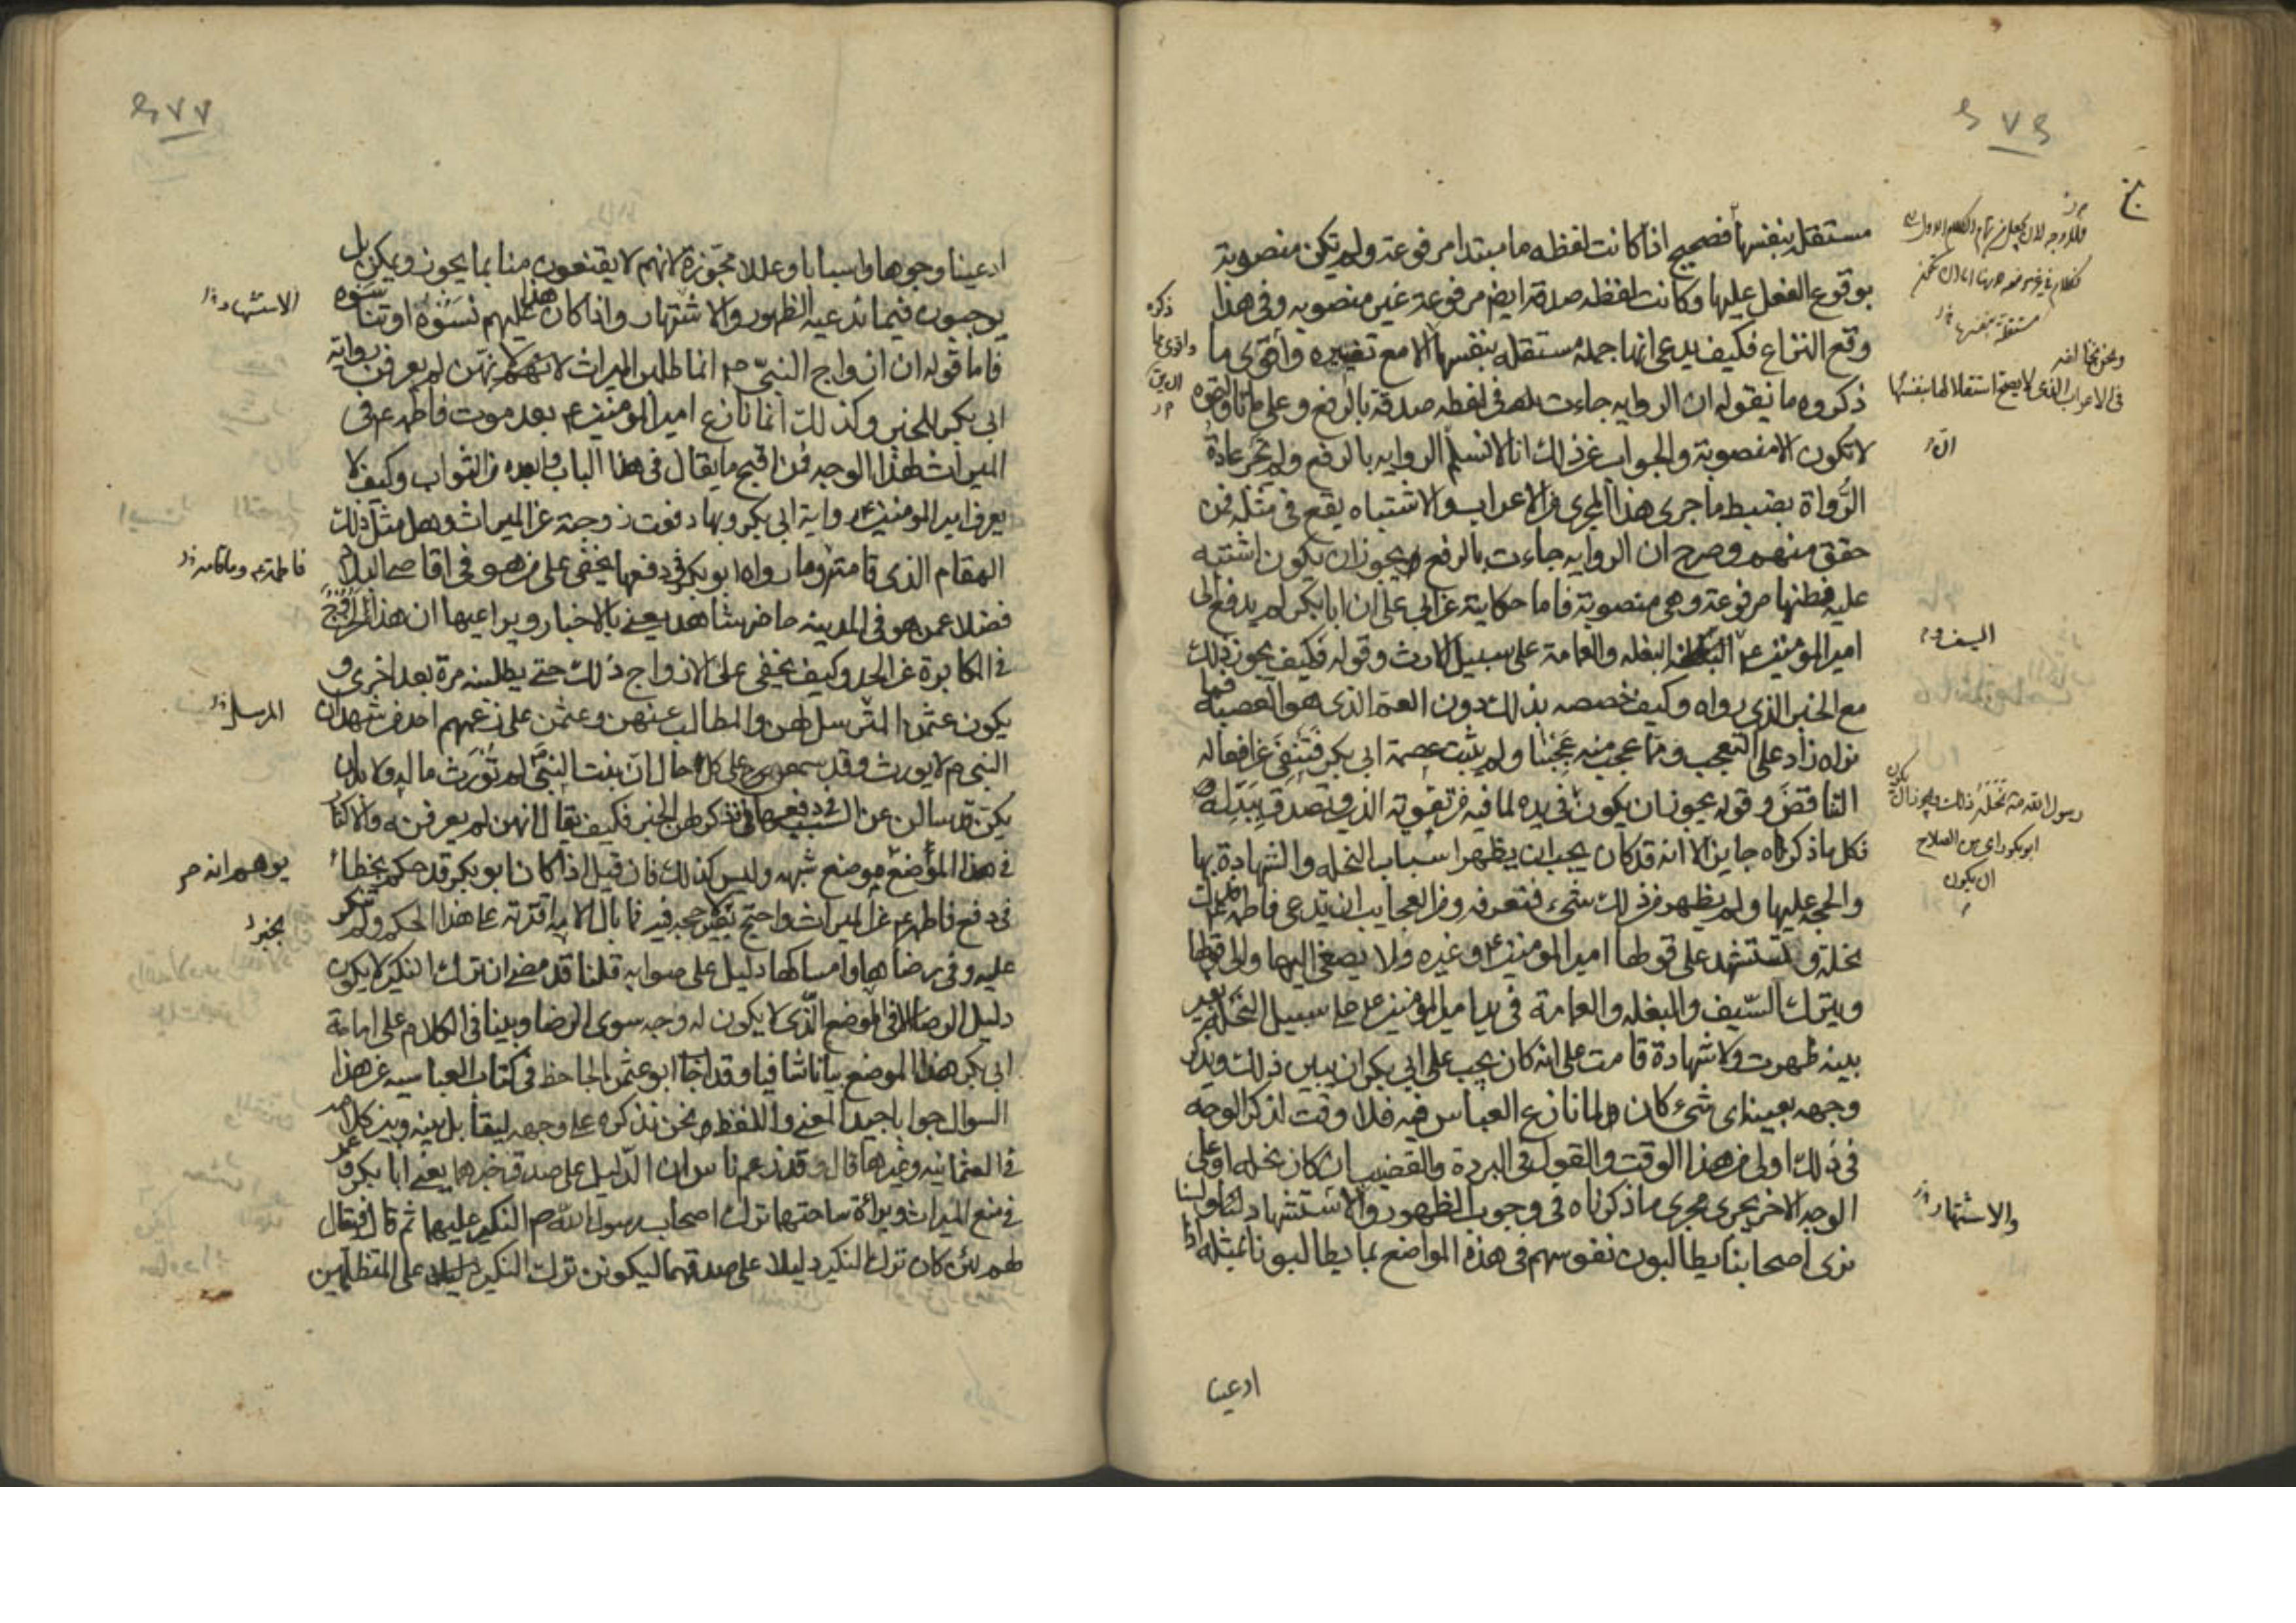 ٢٧٦
مستقله بنفسها فصحيح اذا كانت لفظه ما مبتدا مرفوعة ولم تكن منصوبة
بوقوع الفعل عليها وكانت لفظه صدقة ايضا مرفوعة غير منصوبه وفى هذا
وقع النزاع فكيف يدعى انها جملة مستقله بنفسها الا مع تغييره وأقوى ما
ذكروه ما نقوله ان الروايه جاءت فى لفظه صدقة بالرفع وعلى ما تأولتموه
لا تكون الا منصوبة والجواب عن ذلك انا لا نسلم الروايه بالرفع ولم تجر عادة
الرُّواة بضبط ما جرى هذا المجرى من الاعراب والاشتباه يقع فى مثله فمن
حقق منهم وصرح ان الروايه جاءت بالرفع يجوز ان يكون اشتبه
عليه فظنها مرفوعة وهى منصوبة فاما حكايته عن ابى على ان ابا بكر لم يدفع الى
امير المؤمنين ع البغله والعمامة على سبيل الارث وقوله فكيف يجوز ذلك
مع الخبر الذى رواه وكيف خصصه بذلك دون العم الذى هو العصبة فما
نراه زاد على التعجب ومما عجب منه عجبنا ولم يثبت عصمة ابى بكر فننفى عن افعاله
التناقض وقوله يجوز ان يكون فى يده لما فيه من تقويه الدين وتصدق ببدله و
فكل ما ذكراه جايز الا انه قد كان يجب ان يظهر اسباب النحله والشهادة بها
والحجه عليها ولم يظهر من ذلك شىء فنعرفه ومن العجايب ان تدعى فاطمه فدك
نحلة وتستشهد على قولها امير المؤمنين ع وغيره ولا يصغى اليها والى قولها
ويترك السّيف والبغله والعمامة فى يد امير المؤمنين ع على سبيل النحله بغير
بينه ظهرت ولا شهادة قامت على انه كان يجب على ابى بكر ان يبين ذلك ويذكر
وجهه بعينه اى شىء كان لما نازع العباس فيه فلا وقت لذكر الوجه
فى ذلك اولى من هذا الوقت والقول فى البردة والقضيب ان كان نحله او على
الوجه الاخر يجرى مجرى ما ذكرناه فى وجوب الظهور والاستشهاد ولسنا
نرى اصحابنا يطالبون نفوسهم فى هذه المواضع بما يطالبونا بمثله اذا
ونحن نخالفه
فى الاعراب الذى لا يصح استقلالها بنفسها
ذكره
السيف و
رسول الله نحله ذلك
ابو بكر راى من الصلاح
ان يكون
والاشتهار
ادعينا
٢٧٧
ادعينا وجوها واسبابا وعللا مجوزة لانهم لا يقنعون منا بما يجوز ويمكن بل
يوجبون فيما ندعيه الظهور والاشتهار واذا كان هذا عليهم نسوه او تناسوه
فاما قوله ان ازواج النبىّ ص انما طلبن الميراث لانهن لم يعرفن رواية
ابى بكر للخبر وكذلك انما نازع امير المؤمنين ع بعد موت فاطمه ع فى
الميراث لهذا الوجه فمن اقبح ما يقال فى هذا الباب وابعده من الثواب وكيف لا
يعرف امير المؤمنين ع رواية ابى بكر وبها دفعت زوجته عن الميراث وهل مثل ذلك
المقام الذى قامته وما رواه ابو بكر فى دفعها يخفى على من هو فى اقاصى البلاد
فضلا عمن هو فى المدينة حاضر شاهد يعنى بالاخبار ويراعيها ان هذا لخروج
فى المكابرة عن الحد وكيف يخفى على الازواج ذلك حتى يطلبنه مرة بعد اخرى و
يكون عثمن المترسل لهن والمطالب عنهن وعثمن على زعمهم احد من شهد ان
النبى ص لا يورث وقد سمعن على كل حال ان بنت النبىّ لم تورث ماله ولا بد ان
يكن قد سالن عن السبب فى دفعها فذكر لهن الخبر فكيف يقال انهن لم يعرفنه والاكثار
فى هذا الموضع موضع شبهه وليس كذلك فان قيل اذا كان ابو بكر قد حكم بخطاء
فى دفع فاطمه ع عن الميراث واحتج بخبر لا حجه فيه فما بال الامه اقرته على هذا الحكم ولم تنكر
عليه وفى رضاها وامساكها دليل على صوابه قلنا قد مضى ان ترك النكير لا يكون
دليل الرضا الا فى الموضع الّذى لا يكون له وجه سوى الرضا وبينا فى الكلام على امامة
ابى بكر هذا الموضع بيانا شافيا وقد اجاب ابو عثمن الجاحظ فى كتاب العباسيه عن هذا
السوال جوابا جيد المعنى واللفظ نحن نذكره على وجهه ليقابل بينه وبين كلامه
فى العثمانيه وغيرها قال وقد زعم ناس ان الدّليل على صدق خبرهما يعنى ابا بكر وعمر
فى منع الميراث وبراءة ساحتهما ترك اصحاب رسول الله ص النكير عليهما ثم قال فيقال
لهم لئن كان ترك النكير دليلا على صدقهما ليكونن ترك النكير على المتظلمين
الاستشهاد
فاطمة ع وما قامته
المرسل
يوهم انه
بخبر